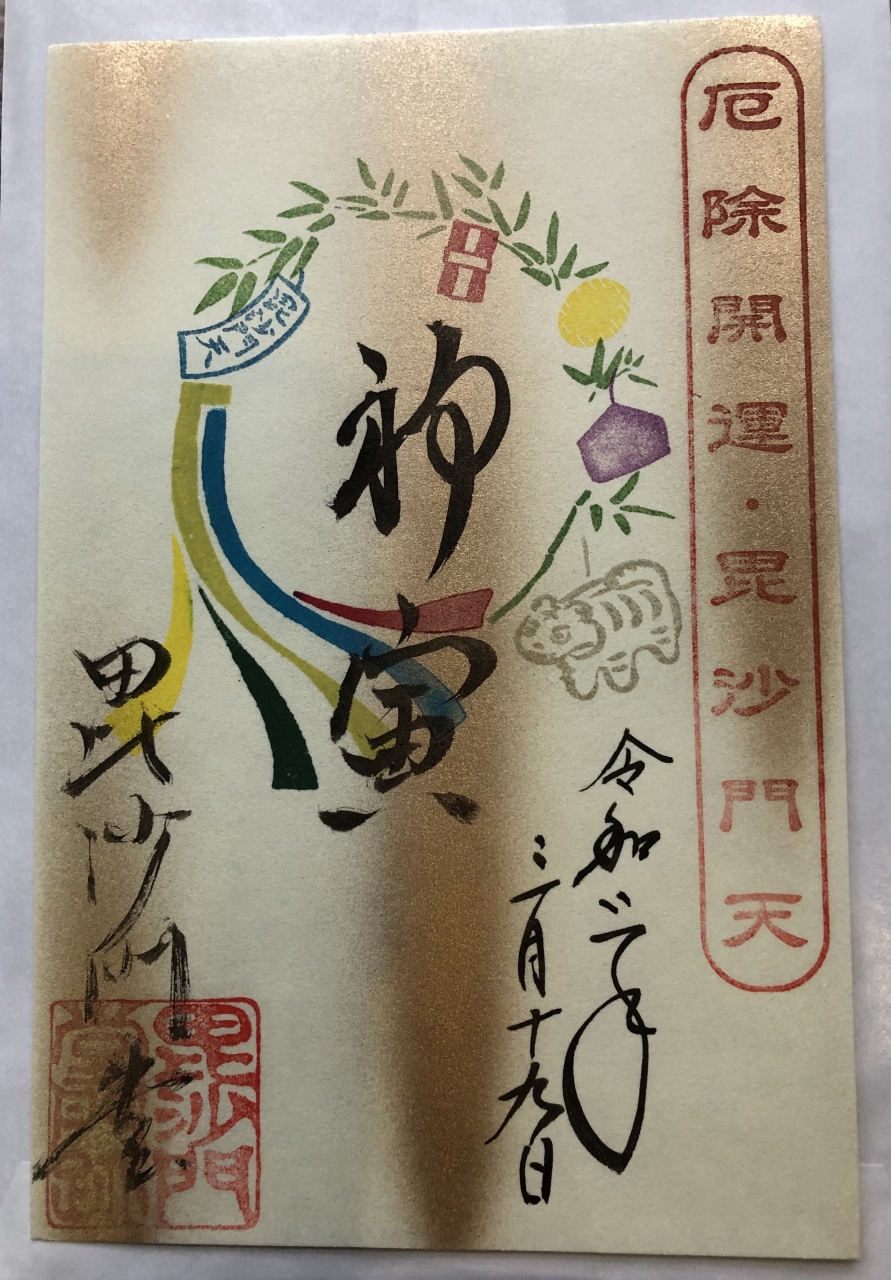 厄除開運・毘沙門天
毘沙門天
神寅
令和二年
三月十九日
毘沙門堂
毘沙門
堂印